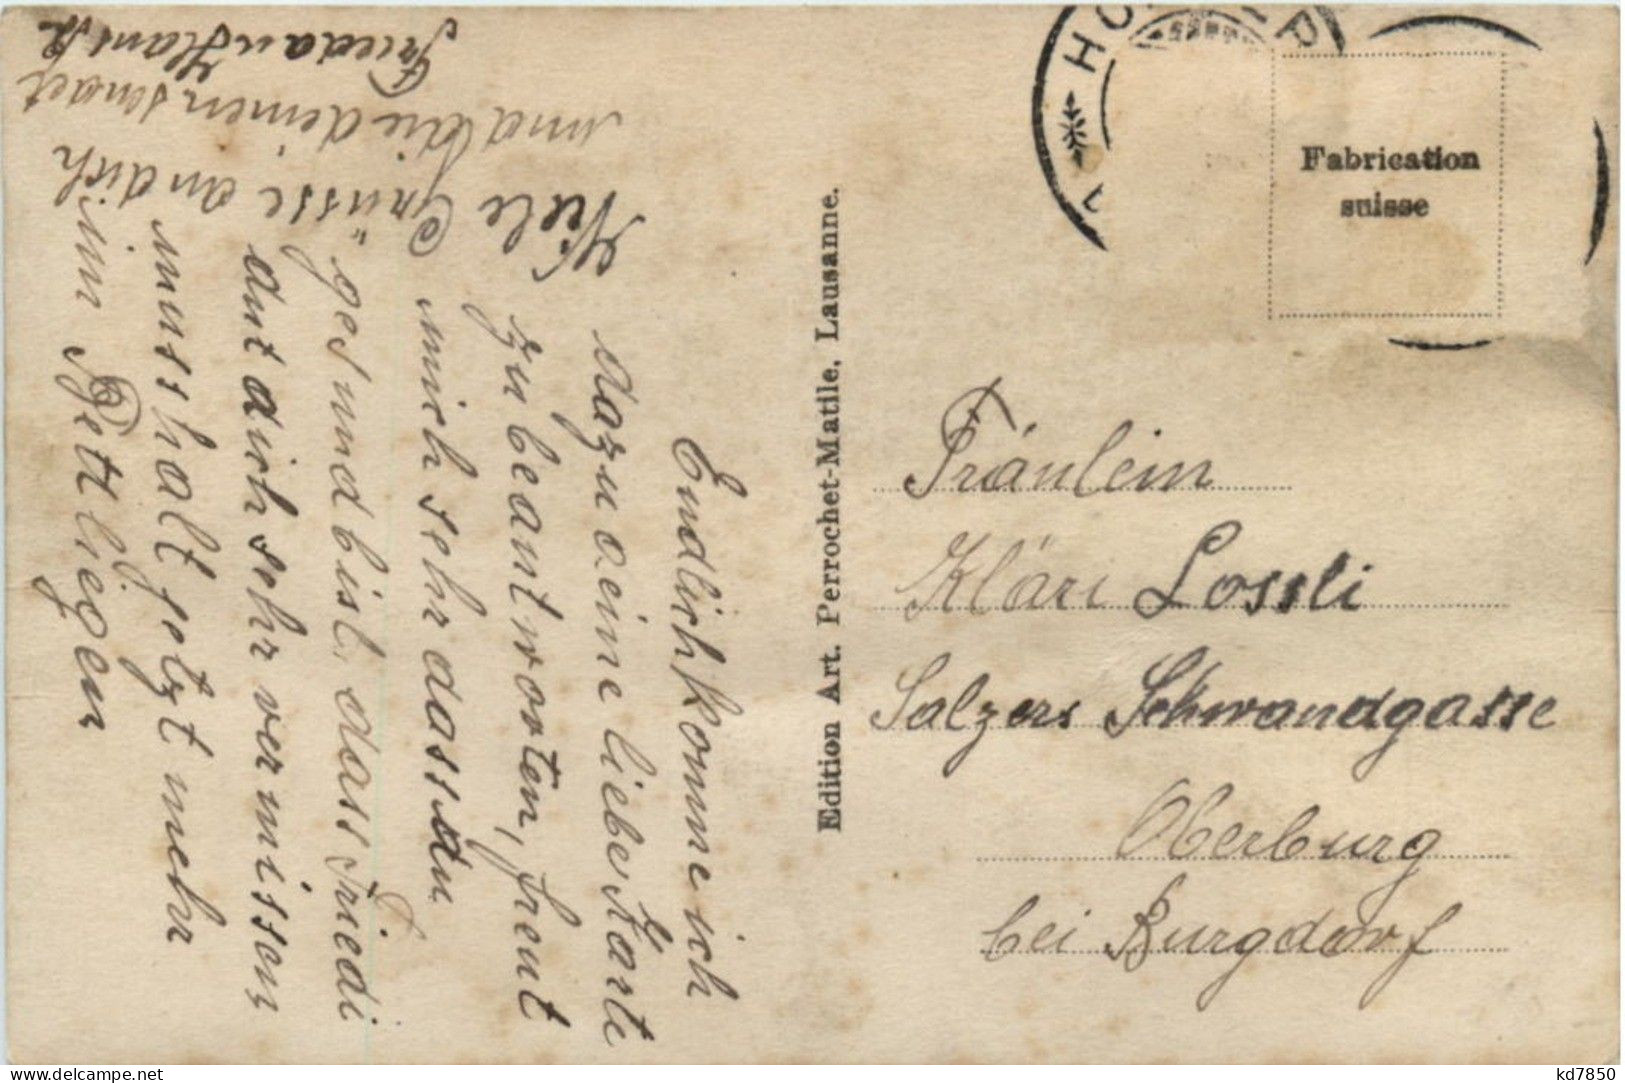 Endlich komme ich
dazu deine liebe Karte
zu beantworten, freut
mich sehr dass du
gesund bist. dass Friedi
dut dich sehr vermissen
muss halt jetzt mehr
im Bett liegen
Viele Grüsse an dich
und die deinen sendet
Frieda u Hans
Edition Art. Perrochet-Matile, Lausanne.
Fabrication
suisse
Fräulein
Kläri Lossli
Salzers Schwandgasse
Oberburg
bei Burgdorf
www.delcampe.net
kd7850